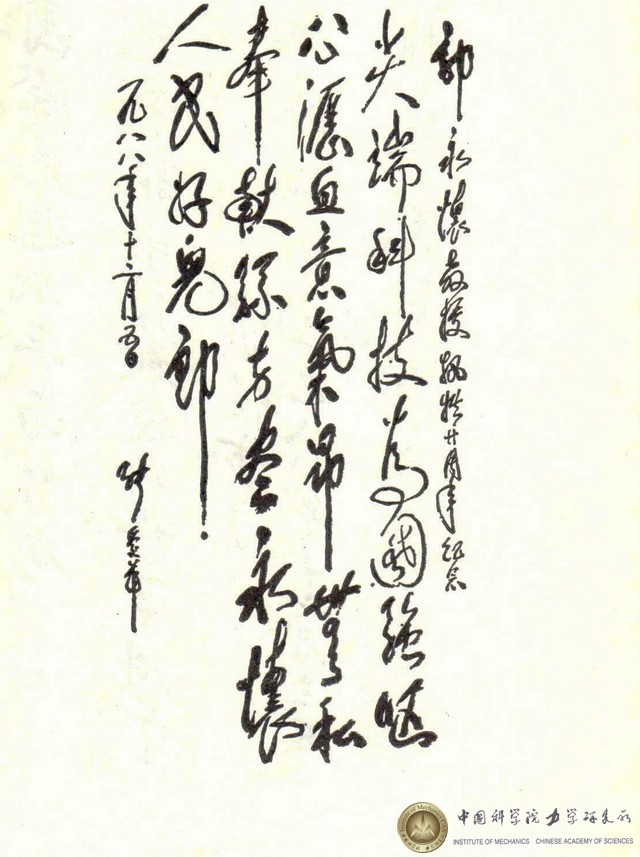 郭永懷教授犧牲廿周年纪念
尖端科技为國强呕
心瀝血意氣昂無私
奉献絲方盡永懷
人民好兒郎
一九八八年十二月五日
中国科学院力学研究所
INSTITUTE OF MECHANICS CHINESE ACADEMY OF SCIENCES